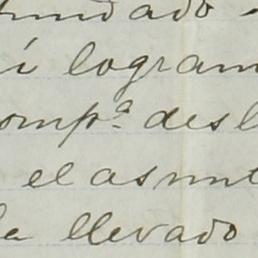 undado
í logram
omp.ª desl
el asunt
la llevado